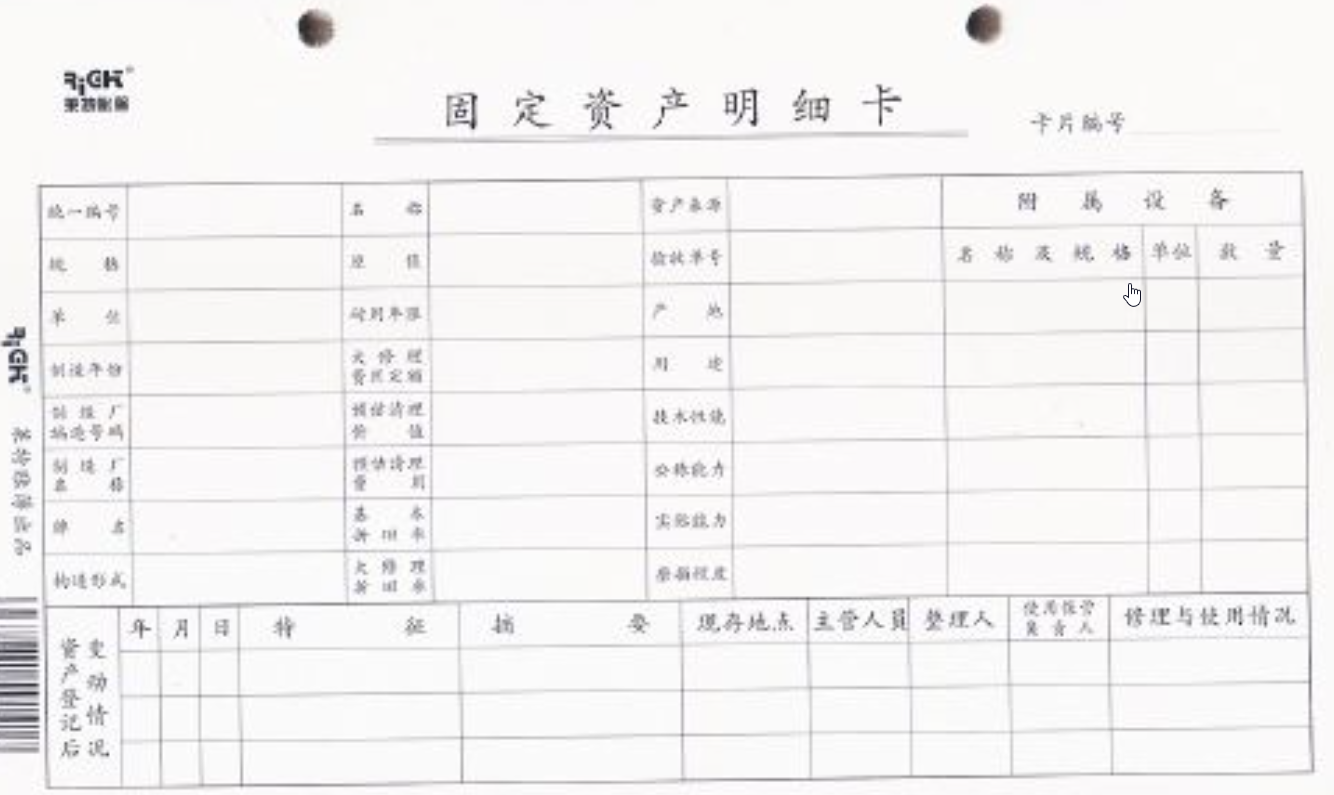 RiCH®
莱特账簿
固定资产明细卡
卡片编号
统一编号 名称 资产来源 附属设备
规格 原值 验收单号 名称及规格 单位 数量
单位 耐用年限 产地
制造年份 大修理费用定额 用途
制造厂编造号码 预估清理价值 技术性能
制造厂名称 预估清理费用 公称能力
牌名 基本折旧率 实际能力
构造形式 大修理折旧率 磨损程度
资产登记后变动情况 年 月 日 特征 摘要 现存地点 主管人员 整理人 使用保管负责人 修理与使用情况
RiCH®